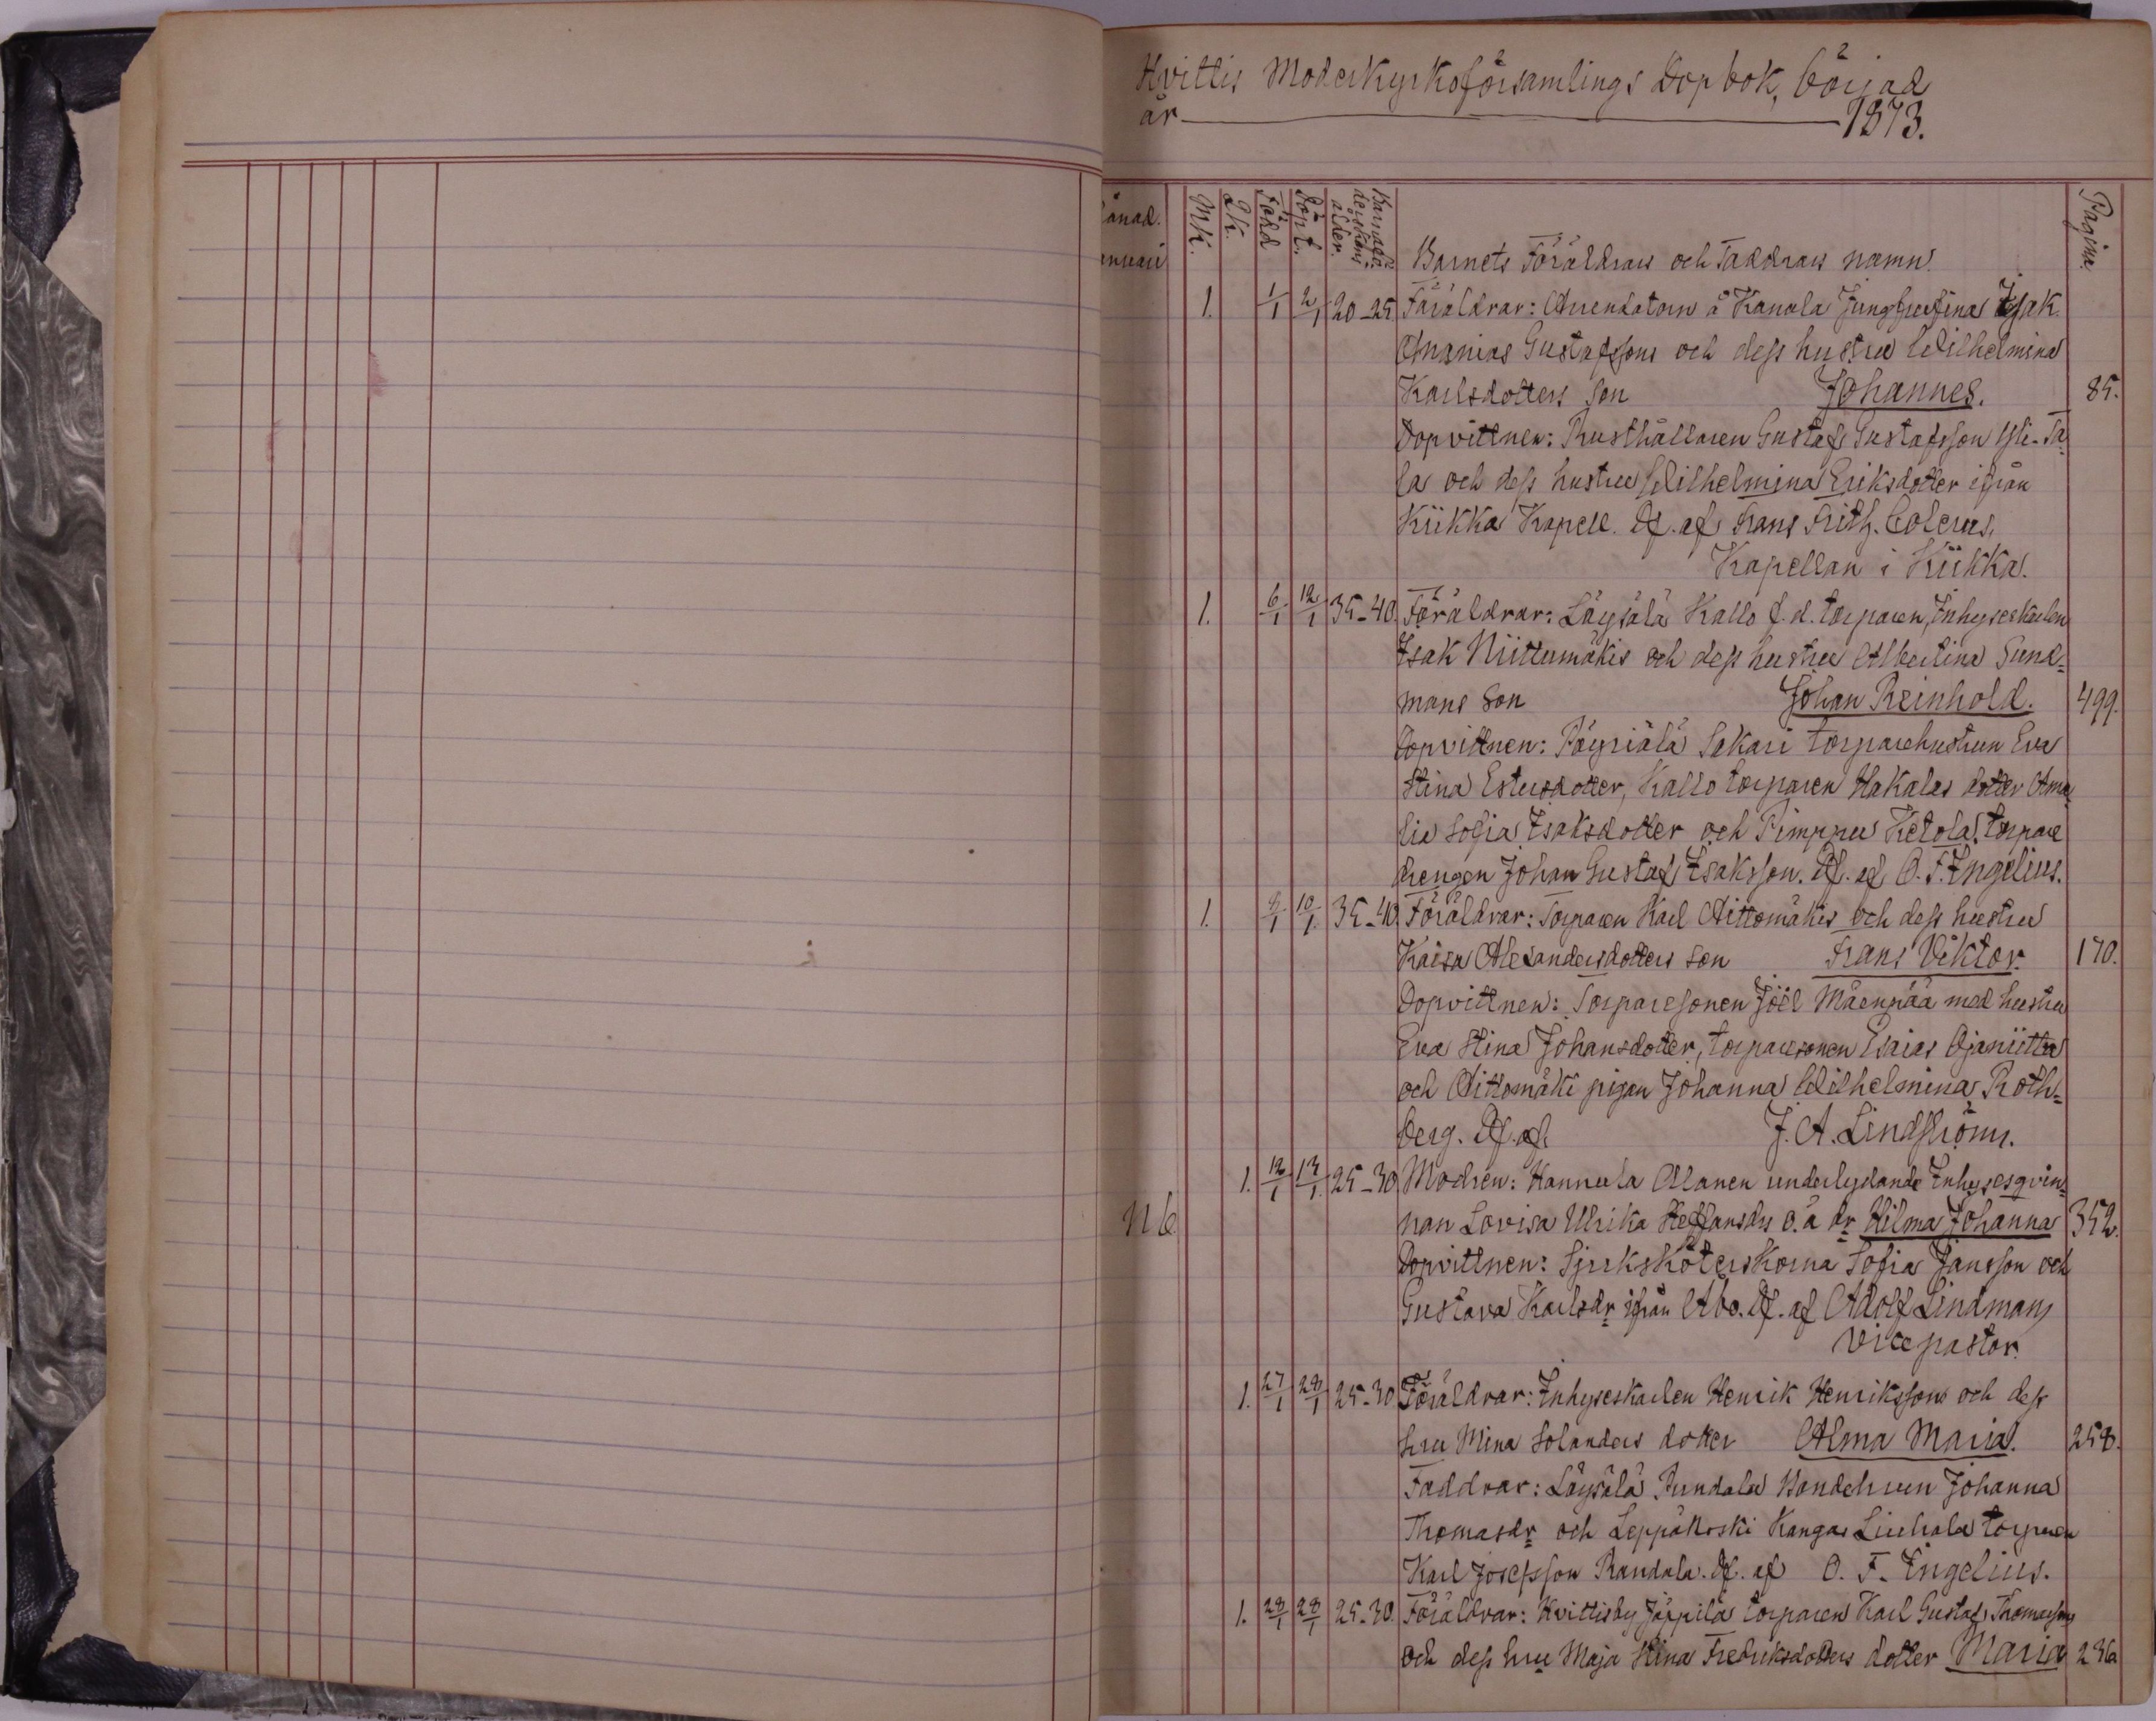 Hvittis Moderkyrkoförsamlings Dopbok, börjad
år 1873.
Mk. Qk. Född Döpt. Barnaföderskans ålder. Pagina.
Barnets Föräldrars och Faddrars namn.
1. 1/1 2/1 20-25. Föräldrar: Arrendatorn å Kanala Jungfrustina Isak
Ananias Gustafssons och dess hustru Wilhelmina
Karlsdotters son Johannes. 85.
Dopvittnen: Rusthållaren Gustaf Gustafsson Yli-
la och dess hustru Wilhelmina Eriksdotter ifrån
Kiikka Kapell. Df. af Frans Frith. Colerus,
Kapellan i Kiikka.
1. 6/1 12/1 35-40. Föräldrar: Löysälä Kallo f.d. torparen, Inhyseskarlen
Isak Niittumäkis och dess hustru Albertina Sund=
mans son Johan Reinhold. 499.
Dopvittnen: Sakari torparehustrun Eva
Stina Estersdotter, Kallo torparen Hakalas dotter Ama
lia Sofia Isaksdotter och Pimppu Ketola torpare
drengen Johan Gustaf Isaksson. Df. af O. F. Ingelius.
1. 8/1 10/1. 35-40. Föräldrar: Torparen Karl Aittomäkis och dess hustru
Kaisa Alexandersdotters son Frans Viktor. 170.
Dopvittnen: Torparesonen Joel Mäenpää med hustru
Eva Stina Johansdotter, torparesonen Esaias Ojaniittu
och Aittomäki pigan Johanna Wilhelmina Roth=
berg. Df. af J. A. Lindström.
1. 12/1 13/1. 25-30 Modren: Hannula Alanen underlydande Inhysesqvin=
Nb nan Lovisa Ulrika Steffansdrs o.ä dr Hilma Johanna 352.
Dopvittnen: Sjuksköterskorna Sofia Jansson och
Gustava Karlsdr ifrån Åbo. Df. af Adolf Lindman,
Vicepastor.
1. 27/1 28/1 25-30 Föräldrar: Inhyseskarlen Henrik Henrikssons och dess
hru Mina Solanders dotter Alma Maria. 258.
Faddrar: Löysälä Bondehrun Johanna
Thomasdr och Leppäkoski Kangas Liuhala torparen
Karl Josefsson Randala. Df. af O. F. Ingelius.
1. 28/1 28/1 25-30. Föräldrar: Hvittisby Jäppilä torparen Karl Gustaf Thomassons
och dess hru Maja Stina Fredriksdotters dotter Maria 236